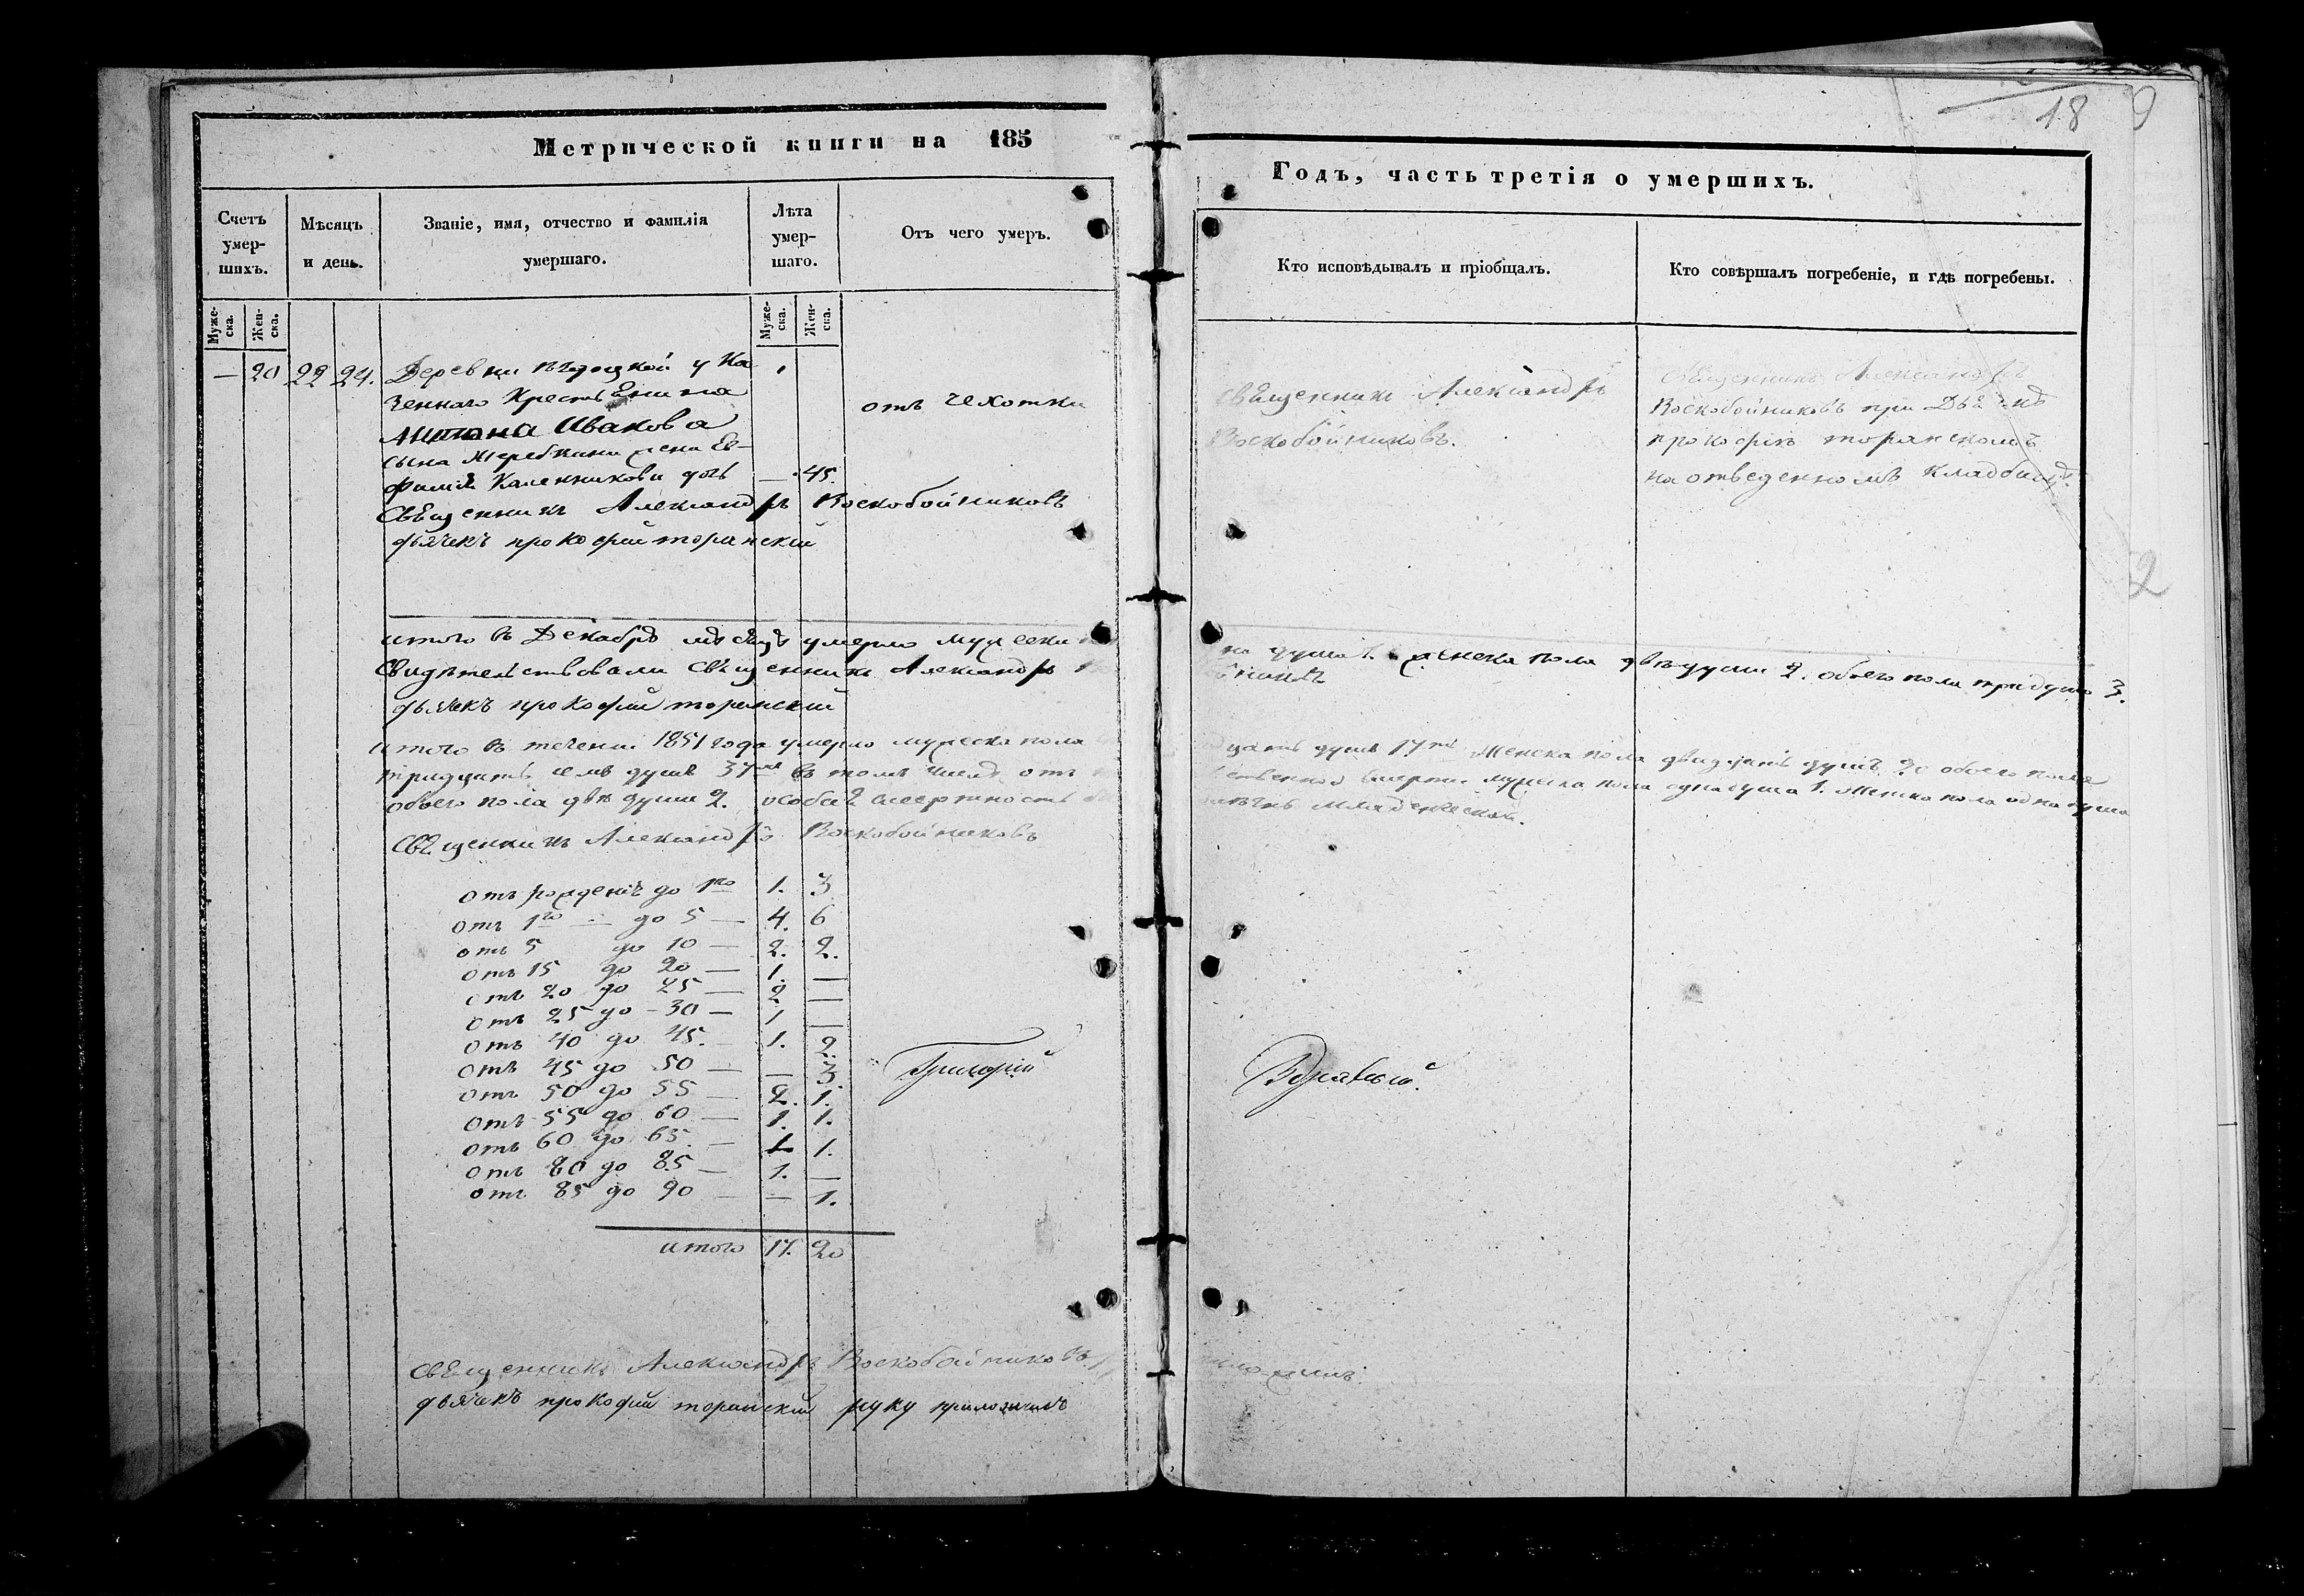 18 9
Метрической книги на 185
Годъ, часть третія о умершихъ.
Счетъ умер-шихъ.
Мѣсяцъ и день.
Званіе, имя, отчество и фамилія умершаго.
Лѣта умер-шаго.
Отъ чего умеръ.
Кто исповѣдывалъ и пріобщалъ.
Кто совѣршалъ погребеніе, и гдѣ погребены.
Муже-ска.
Жен-ска.
Муже-ска.
Жен-ска.
— 20 22 24. Деревни у Ка
зеннаго Крестьенина
Антона Ивакова
сына жена Ев-
фимія Каленникова дочь — 45.
отъ чехотки
Свѣщенникъ Александръ Воскобойниковъ
дьячекъ прокофій торанскій
свѣщенникъ Александръ
Воскобойниковъ.
свѣщенникъ Александръ
Воскобойниковъ при Дьячкѣ
прокофіѣ торанскомъ
на отведенномъ кладбищѣ.
2
итого въ Декабрѣ мѣсяцѣ умерло мужеска
на душа 1. женска пола двѣ души 2. обоего пола три души 3.
Свидѣтельствовали свѣщенникъ Александръ
бойниковъ
дьячекъ прокофій торанскій
итого въ теченіи 1851 года умерло мужеска пола
дцать душъ 17ть женска пола двадцать душъ 20 обоего пола
тридцать семь душъ 37мь въ томъ числѣ отъ
ственной смерти мужеска пола одна душа 1. женска пола одна душа
обоего пола двѣ души 2. особая смертность
младенческая.
Свѣщенникъ Александръ Воскобойниковъ
отъ рожденія до 1го 1. 3
отъ 1го — до 5 — 4. 6
отъ 5 до 10 — 2. 2.
отъ 15 до 20 — 1. —
отъ 20 до 25 — 2 —
отъ 25 до 30 — 1 —
отъ 40 до 45. — 1. 2.
отъ 45 до 50 — — 3.
отъ 50 до 55 — 2. 1.
отъ 55 до 60 — 1. 1.
отъ 60 до 65. — 1 1.
отъ 80 до 85 — 1. —
отъ 85 до 90 — — 1.
Григорій
Здравый.
итого 17. 20
Свѣщенникъ Александръ Воскобойниковъ
ложилъ.
дьячекъ прокофій торанскій руку приложилъ